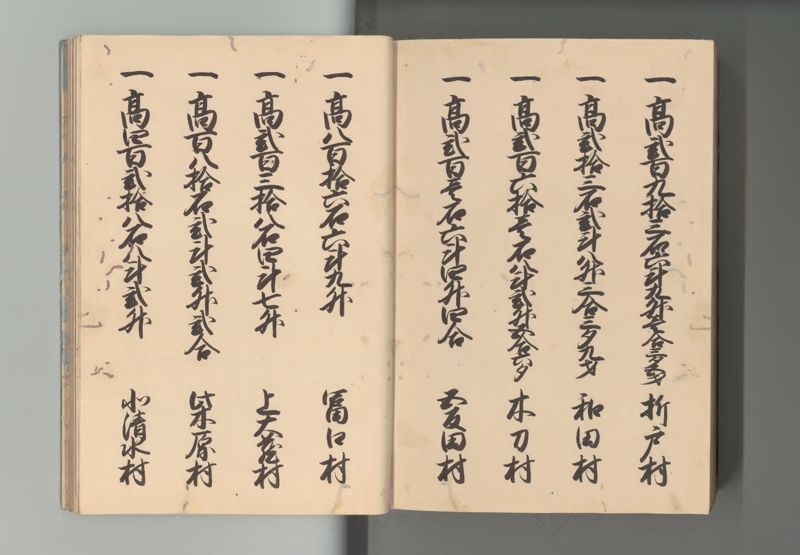 一 高弐百九拾三石四斗九升壱合三夕弐才 折戸村
一 高弐拾三石弐斗八升三合三夕九才 和田村
一 高弐百六拾壱石八斗弐升五合六夕 木刀村
一 高弐百壱石六斗四升四合 田村
一 高八百拾六石六斗九升 冨口村
一 高弐百三拾八石四斗七升 上大蔵村
一 高百八拾石弐斗弐升弐合 柴原村
一 高四百弐拾八石八斗弐升 北清水村